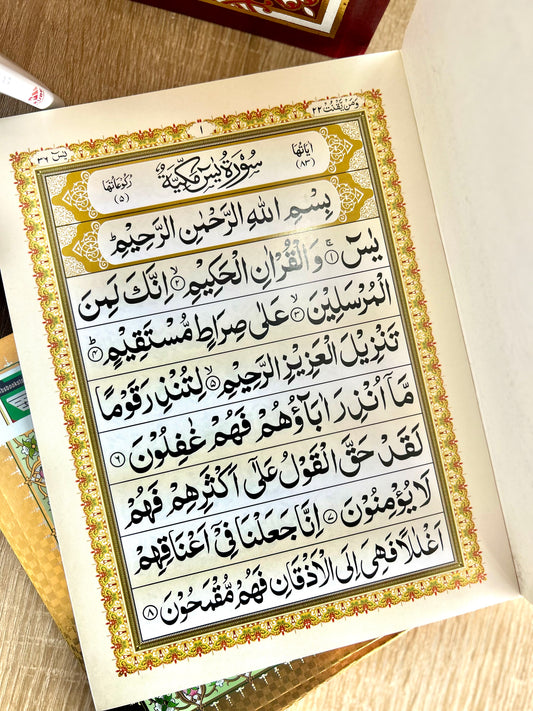 وَمَنْ يَّقْنُتْ ٢٢
١
يٰسٓ ٣٦
اٰيَاتُهَا (٨٣)
سُوْرَةُ يٰسٓ مَكِّيَّةٌ
رُكُوْعَاتُهَا (٥)
بِسْمِ اللّٰهِ الرَّحْمٰنِ الرَّحِيْمِ
يٰسٓ ﴿١﴾ وَالْقُرْاٰنِ الْحَكِيْمِ ﴿٢﴾ اِنَّكَ لَمِنَ
الْمُرْسَلِيْنَ ﴿٣﴾ عَلٰى صِرَاطٍ مُّسْتَقِيْمٍ ﴿٤﴾
تَنْزِيْلَ الْعَزِيْزِ الرَّحِيْمِ ﴿٥﴾ لِتُنْذِرَ قَوْمًا
مَّآ اُنْذِرَ اٰبَآؤُهُمْ فَهُمْ غٰفِلُوْنَ ﴿٦﴾
لَقَدْ حَقَّ الْقَوْلُ عَلٰٓى اَكْثَرِهِمْ فَهُمْ
لَا يُؤْمِنُوْنَ ﴿٧﴾ اِنَّا جَعَلْنَا فِيْٓ اَعْنَاقِهِمْ
اَغْلٰلًا فَهِيَ اِلَى الْاَذْقَانِ فَهُمْ مُّقْمَحُوْنَ ﴿٨﴾